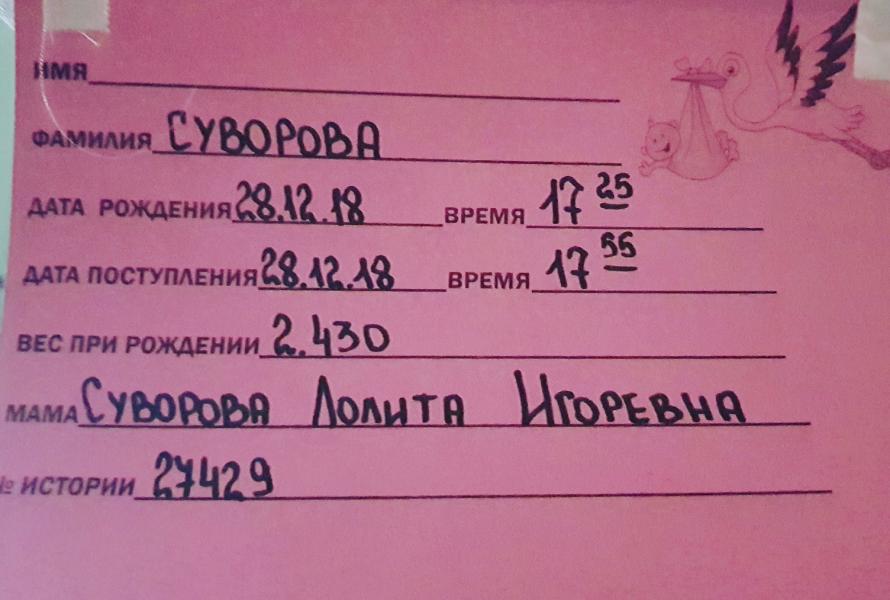 ИМЯ
ФАМИЛИЯ СУВОРОВА
ДАТА РОЖДЕНИЯ 28.12.18 ВРЕМЯ 17 25
ДАТА ПОСТУПЛЕНИЯ 28.12.18 ВРЕМЯ 17 55
ВЕС ПРИ РОЖДЕНИИ 2.430
МАМА СУВОРОВА ЛОЛИТА ИГОРЕВНА
№ ИСТОРИИ 27429